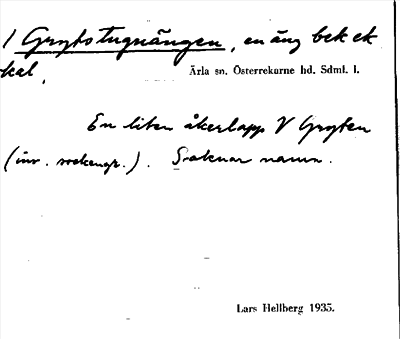 1 Grytstugnängen, en äng bek ek
kal,
Ärla sn. Österrekarne hd. Sdml. l.
En liten åkerlapp V Gryten
(inv. ). Saknar namn.
Lars Hellberg 1935.